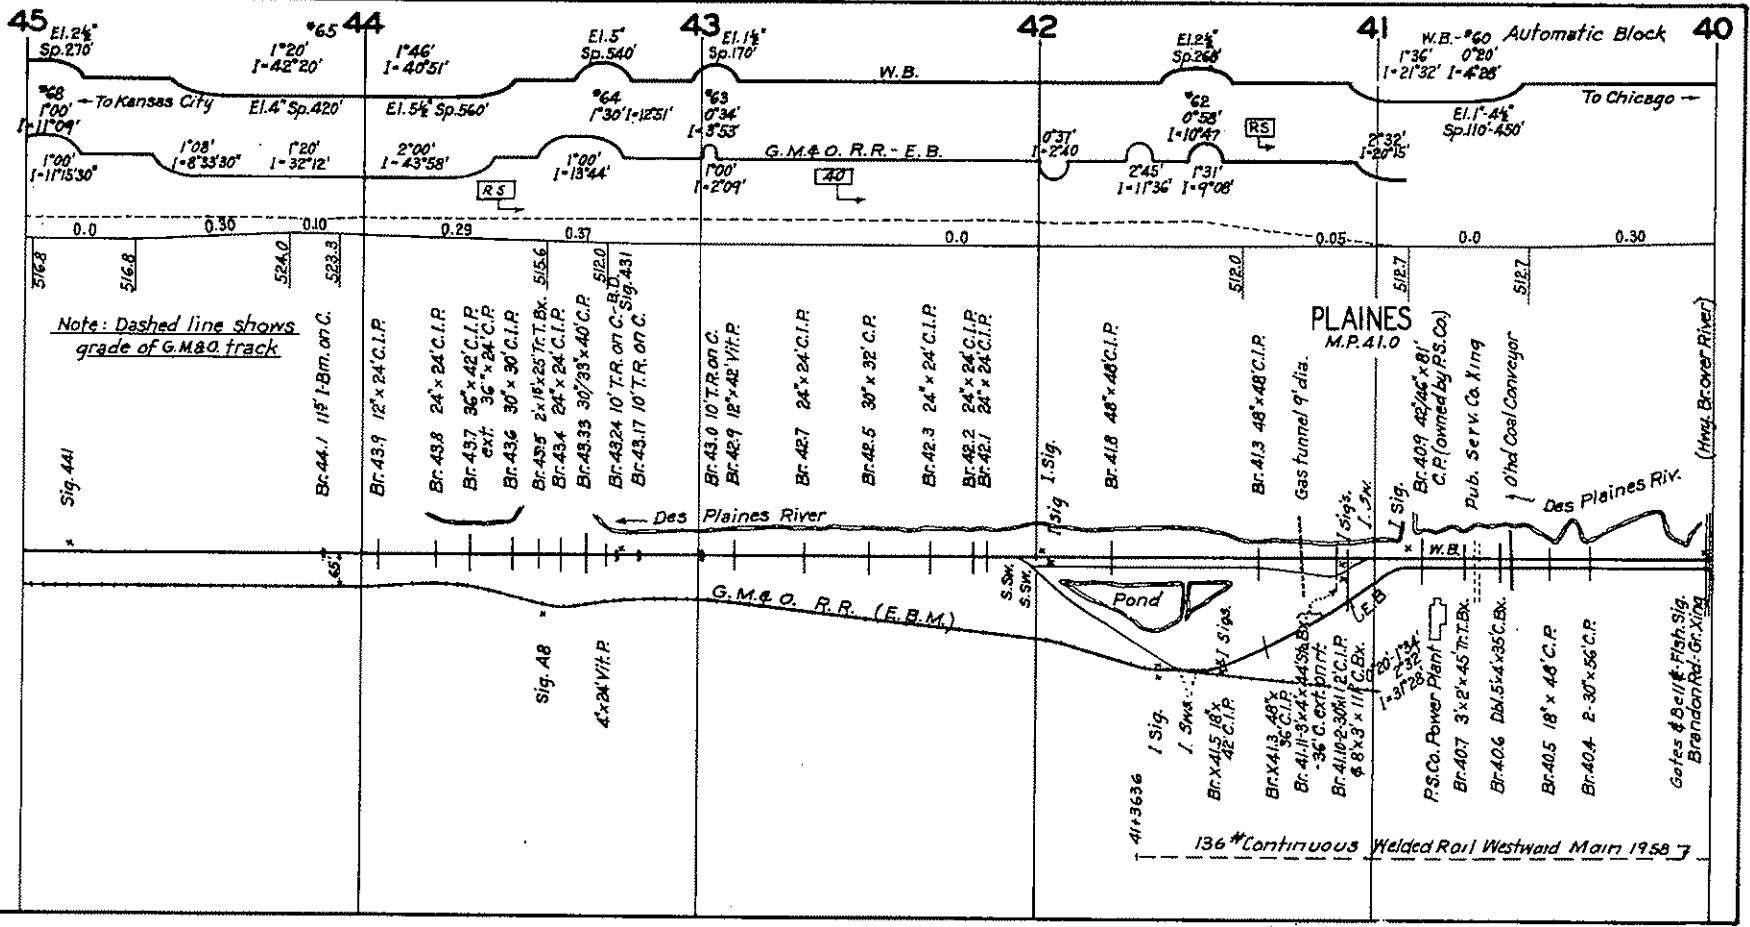 45 44 43 42 41 40
El.2½" Sp.270'
#65
1°20' I=42°20'
1°46' I=40°51'
El.5" Sp.540'
El.1½" Sp.170'
W.B.
El.2½" Sp.268'
W.B.-#60 Automatic Block
1°36' I=21°32'
0°20' I=4°28'
#68 1°00' I=11°09'
← To Kansas City
El.4" Sp.420'
El.5½" Sp.560'
#64 1°30' I=12°51'
#63 0°34' I=3°53'
#62 0°58' I=10°47'
RS
El.1"-4½" Sp.110'-450'
To Chicago →
1°00' I=11°15'30"
1°08' I=8°33'30"
1°20' I=32°12'
2°00' I=43°58'
1°00' I=13°44'
G.M.& O. R.R.- E.B.
1°00' I=2°09'
0°37' I=2°40
2°45' I=11°36'
1°31' I=9°08'
2°32' I=20°15'
RS
40
0.0 0.30 0.10 0.29 0.37 0.0 0.05 0.0 0.30
516.8 516.8 524.0 523.3 515.6 512.0 512.0 512.7 512.7
Note: Dashed line shows
grade of G.M.&O. track
PLAINES
M.P.41.0
Sig. 441
Br. 44.1 11⁵' I-Bm. on C.
Br. 43.9 12" x 24' C.I.P.
Br. 43.8 24" x 24' C.I.P.
Br. 43.7 36" x 42' C.I.P.
ext. 36" x 24' C.P.
Br. 43.6 30" x 30' C.I.P.
Br. 43.5 2'x1⁵'x25' Tr.T. Bx.
Br. 43.4 24" x 24' C.I.P.
Br. 43.33 30"/33" x 40' C.P.
Br. 43.24 10' T.R. on C.-B.D.
Sig. 431
Br. 43.17 10' T.R. on C.
Br. 43.0 10' T.R. on C.
Br. 42.9 12" x 42' Vit. P.
Br. 42.7 24" x 24' C.I.P.
Br. 42.5 30" x 32' C.P.
Br. 42.3 24" x 24' C.I.P.
Br. 42.2 24" x 24' C.I.P.
Br. 42.1 24" x 24' C.I.P.
I Sig.
I Sig.
Br. 41.8 48" x 48' C.I.P.
Br. 41.3 48" x 48' C.I.P.
Gas tunnel 9' dia.
I Sigs.
I. Sw.
I Sig.
Br. 40.9 42"/46" x 81'
C.P. (owned by P.S. Co.)
Pub. Serv. Co. Xing
O'hd Coal Conveyor
(Hwy. Br. over River)
← Des Plaines River
Des Plaines Riv.
W.B.
65'
S.Sw.
S.Sw.
Pond
E.B.
G.M.& O. R.R. (E.B.M.)
Sig. A8
4" x 24' Vit. P.
I Sigs.
I Sig.
I. Sws.
Br. X41.5 18" x
42' C.I.P.
Br. X41.3 48" x
36' C.I.P.
Br. 41.11-3'x4'x44' St. Bx.
-36' C. ext. on rt.
Br. 41.10-2-30"x112' C.I.P.
& 8'x3'x11⁸' C. Bx.
0°20'-1°34'
2°32'
I=31°28'
P.S. Co. Power Plant
Br. 40.7 3'x2'x45' Tr.T. Bx.
Br. 40.6 Dbl. 5'x4'x35' C. Bx.
Br. 40.5 18" x 48' C.P.
Br. 40.4 2-30" x 56' C.P.
Gates & Bell & Flsh. Sig.
Brandon Rd.-Gr. Xing
41+3636
136# Continuous Welded Rail Westward Main 1958